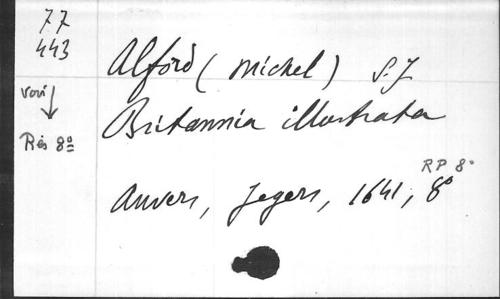 77
443
Alford (Michel) S.J
Britannia illustrata
voir
Rés 8º
RP 8º
Anvers, Jegers, 1641, 8º